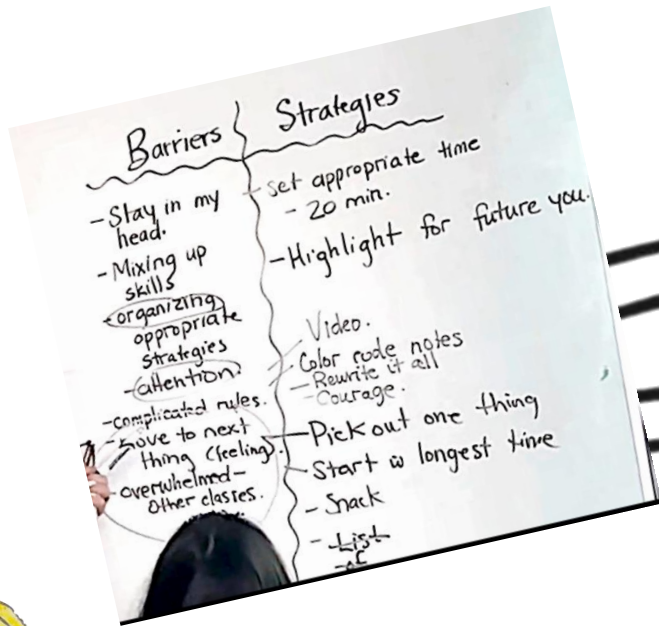 Barriers
- Stay in my
head.
- Mixing up
skills
organizing
appropriate
strategies
- attention.
- complicated rules.
- move to next
thing (feeling).
- overwhelmed -
other classes.
Strategies
- set appropriate time
- 20 min.
- Highlight for future you.
Video.
- Color code notes
- Rewrite it all
- Courage.
- Pick out one thing
- Start w longest time
- Snack
- List